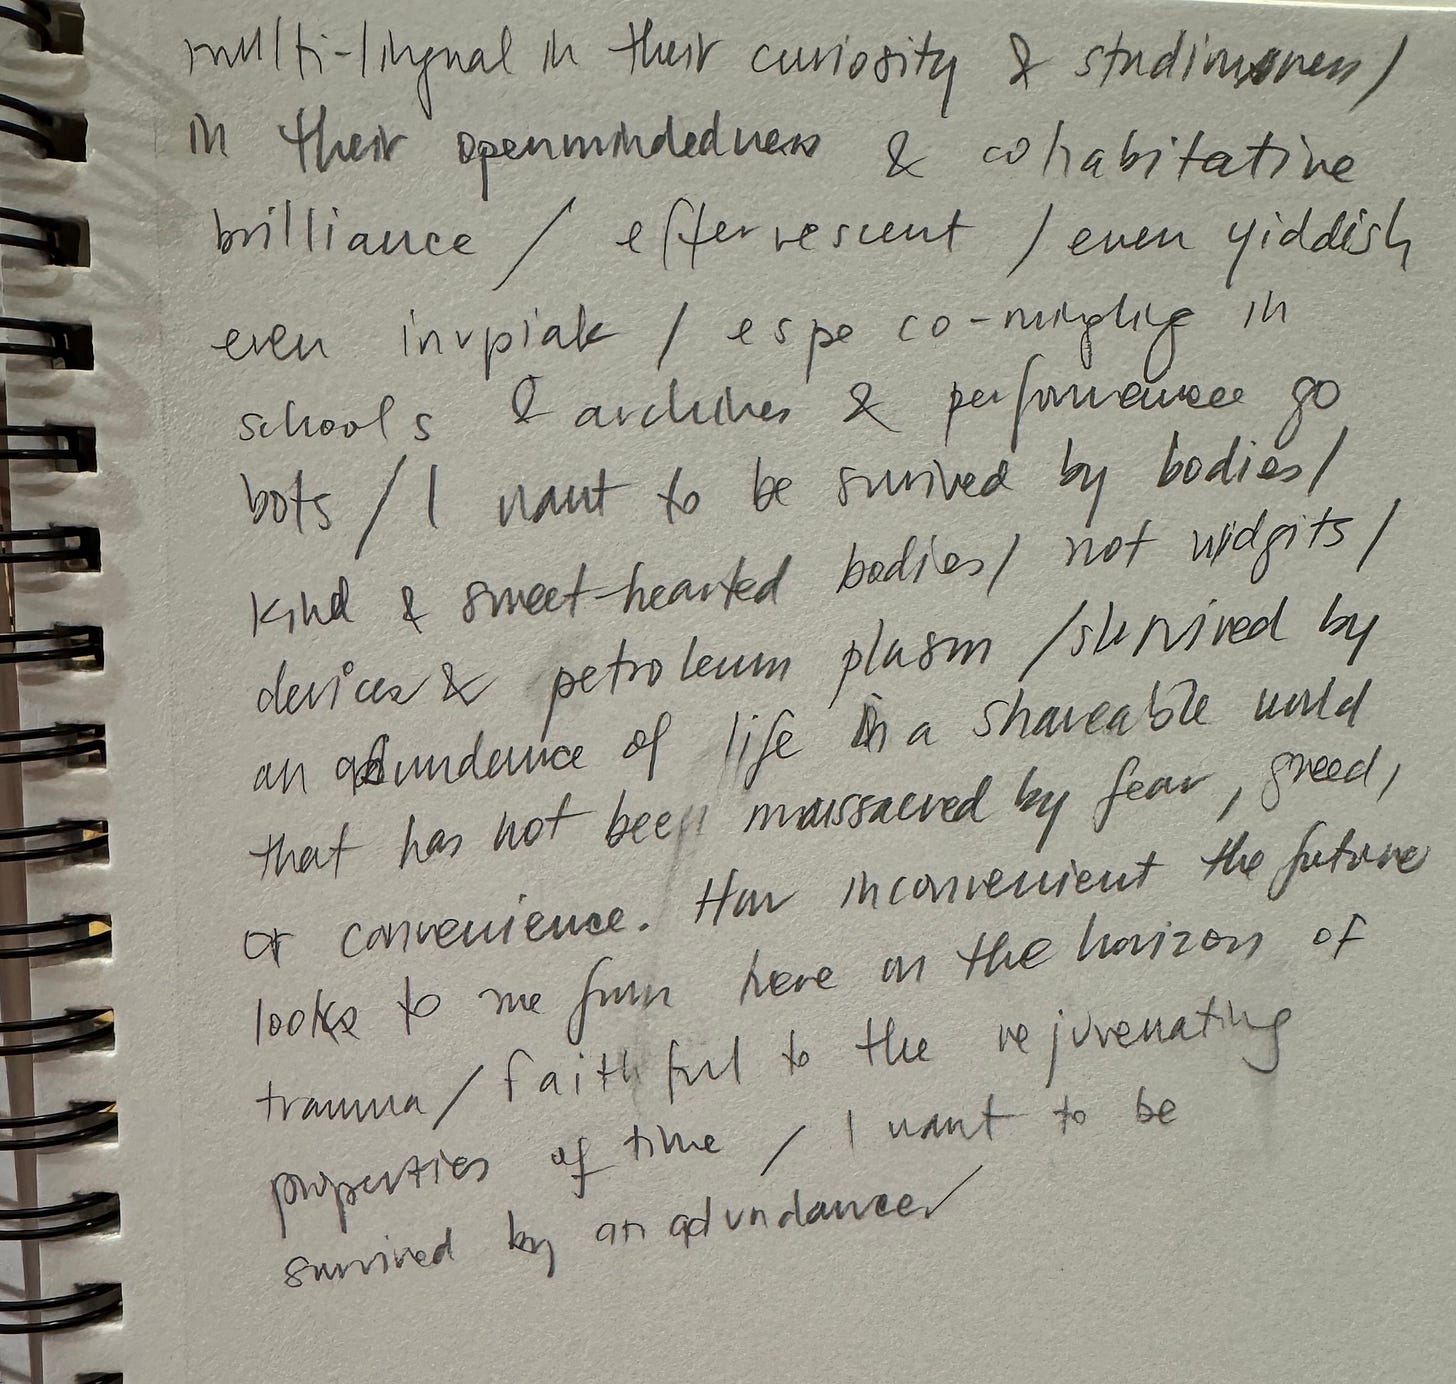 multi-lingual in their curiosity & studiousness /
in their openmindedness & cohabitative
brilliance / effervescent / even yiddish
even inupiak / espe co-mingling in
schools & archives & performance go
bots / I want to be survived by bodies /
kind & sweet-hearted bodies / not widgits /
devices & petroleum plasm / survived by
an abundance of life in a shareable world
that has not been massacred by fear, greed,
or convenience. How inconvenient the future
looks to me from here on the horizon of
trauma / faithful to the rejuvenating
properties of time / I want to be
survived by an abundance /